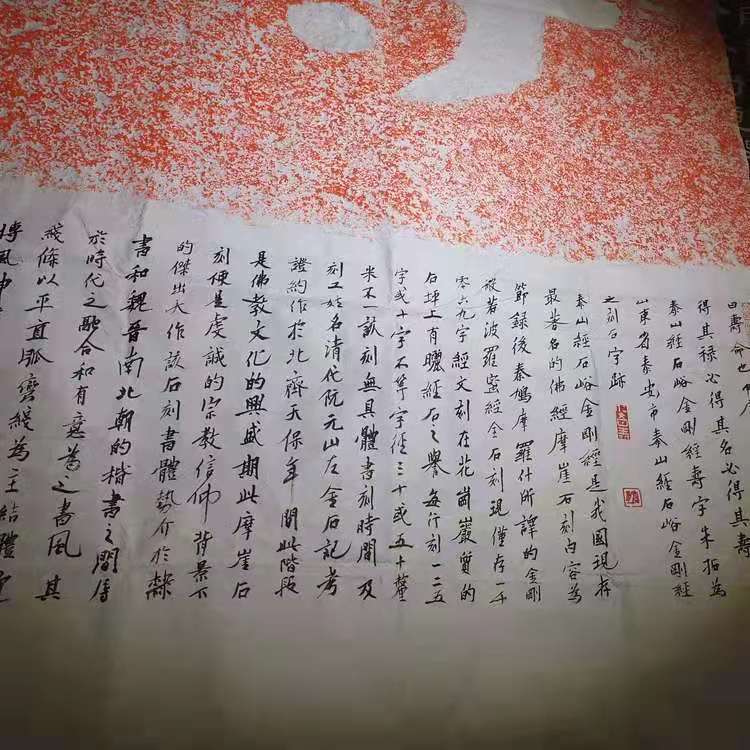 曰壽命也
得其祿必得其名必得其壽
泰山經石峪金剛經壽字朱拓為
山東省泰安市泰山經石峪金剛經
之刻石字跡
泰山經石峪金剛經是我國現存
最著名的佛經摩崖石刻內容為
節録後秦鳩摩羅什所譯的金剛
般若波羅蜜經全石刻現僅存一千
零六九字經文刻在花崗巖質的
石坪上有曬經石之譽每行刻一二五
字或十字不等字徑三十或五十釐
米不一該刻無具體書刻時間及
刻工姓名清代阮元山左金石記考
證約作於北齊天保年間此階段
是佛教文化的興盛期此摩崖石
刻便是虔誠的宗教信仰背景下
的傑出大作該石刻書體勢介於隸
書和魏晉南北朝的楷書之間屬
於時代之融合和有意為之書風其
綫條以平直弧彎綫為主結體寬
博風神